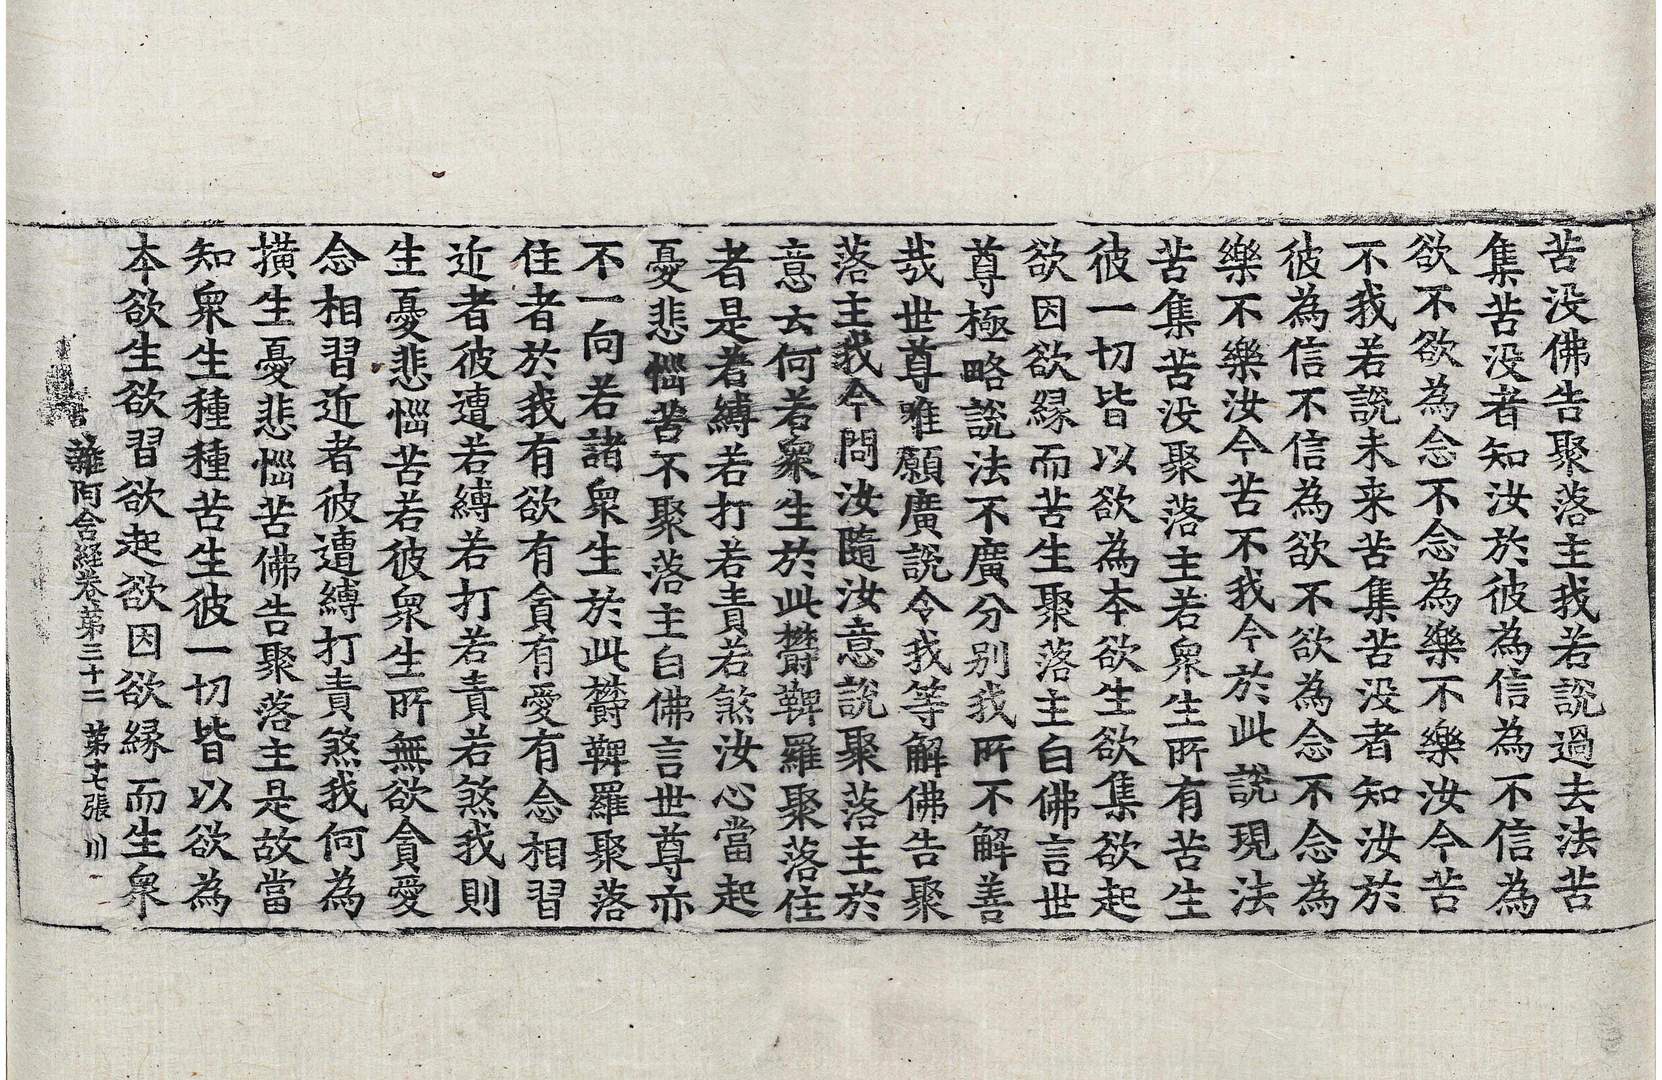 苦没佛告聚落主我若說過去法苦
集苦没者知汝於彼為信為不信為
欲不欲為念不念為樂不樂汝今苦
不我若說未来苦集苦没者知汝於
彼為信不信為欲不欲為念不念為
樂不樂汝今苦不我今於此說現法
苦集苦没聚落主若衆生所有苦生
彼一切皆以欲為本欲生欲集欲起
欲因欲縁而苦生聚落主白佛言世
尊極略說法不廣分別我所不解善
哉世尊唯願廣說令我等解佛告聚
落主我今問汝隨汝意說聚落主於
意云何若衆生於此欝鞞羅聚落住
者是若縛若打若責若煞汝心當起
憂悲惱苦不聚落主白佛言世尊亦
不一向若諸衆生於此欝鞞羅聚落
住者於我有欲有貪有愛有念相習
近者彼遭若縛若打若責若煞我則
生憂悲惱苦若彼衆生所無欲貪愛
念相習近者彼遭縛打責煞我何為
横生憂悲惱苦佛告聚落主是故當
知衆生種種苦生彼一切皆以欲為
本欲生欲習欲起欲因欲縁而生衆
雜阿含經卷第三十二 第十七張 川